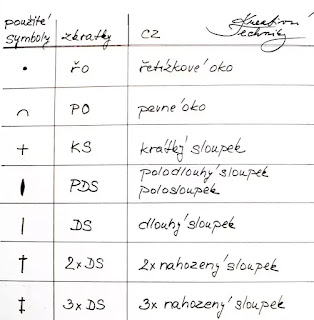 použité symboly zkratky CZ Kreativní Techniky
• řo řetízkové oko
⌒ PO pevné oko
+ KS krátký sloupek
PDS polodlouhý sloupek
polosloupek
| DS dlouhý sloupek
† 2x DS 2x nahozený sloupek
‡ 3x DS 3x nahozený sloupek